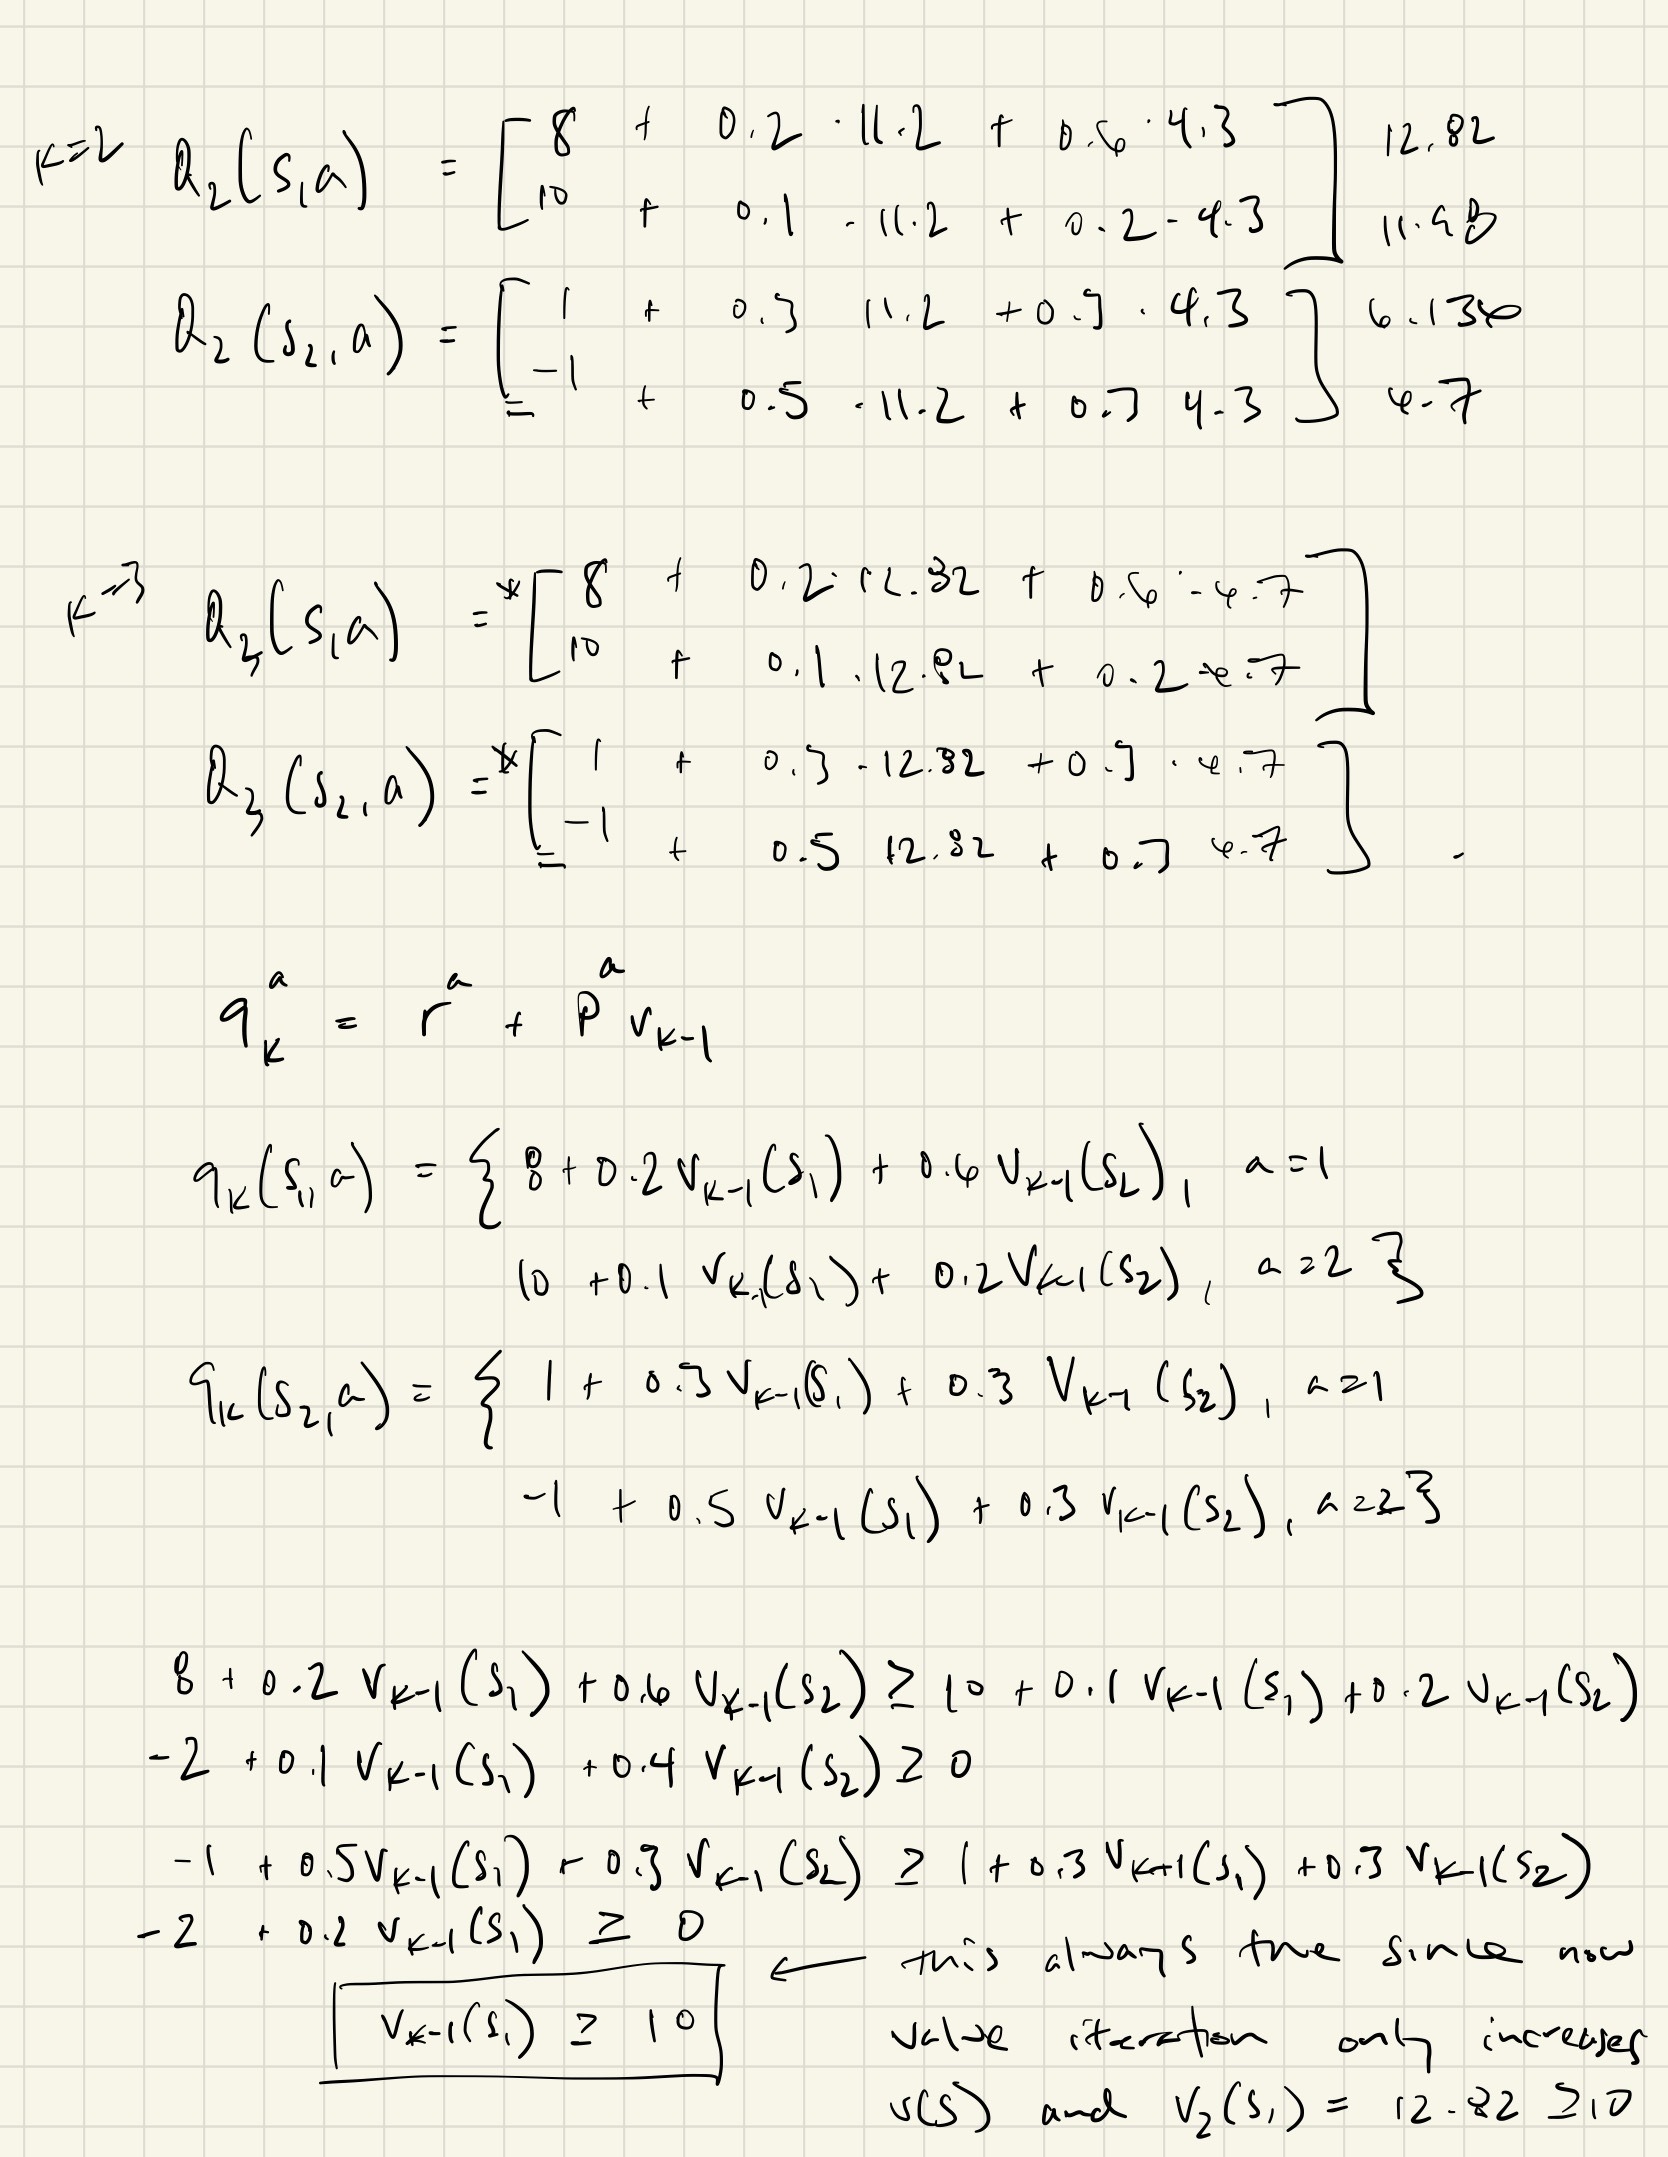 K=2 Q₂(s₁,a) = [ 8 + 0.2 · 11.2 + 0.6 · 4.3 ] 12.82
10 + 0.1 · 11.2 + 0.2 · 4.3 11.98
Q₂(s₂,a) = [ 1 + 0.3 11.2 + 0.3 · 4.3 ]
-1 + 0.5 · 11.2 + 0.3 4.3 ]
K=3 Q₃(s₁,a) = * [ 8 + 0.2 · 12.82 + 0.6 · 4.7 ]
10 + 0.1 · 12.82 + 0.2 · 4.7
Q₃(s₂,a) = * [ 1 + 0.3 · 12.82 + 0.3 · 4.7 ]
-1 + 0.5 12.82 + 0.3 4.7 ] .
qₖᵃ = rᵃ + Pᵃ vₖ₋₁
qₖ(s₁,a) = { 8 + 0.2 vₖ₋₁(s₁) + 0.6 vₖ₋₁(s₂), a=1
10 + 0.1 vₖ₋₁(s₁) + 0.2 vₖ₋₁(s₂), a=2 }
qₖ(s₂,a) = { 1 + 0.3 vₖ₋₁(s₁) + 0.3 vₖ₋₁(s₂), a=1
-1 + 0.5 vₖ₋₁(s₁) + 0.3 vₖ₋₁(s₂), a=2 }
8 + 0.2 vₖ₋₁(s₁) + 0.6 vₖ₋₁(s₂) ≥ 10 + 0.1 vₖ₋₁(s₁) + 0.2 vₖ₋₁(s₂)
-2 + 0.1 vₖ₋₁(s₁) + 0.4 vₖ₋₁(s₂) ≥ 0
-1 + 0.5 vₖ₋₁(s₁) + 0.3 vₖ₋₁(s₂) ≥ 1 + 0.3 vₖ₋₁(s₁) + 0.3 vₖ₋₁(s₂)
-2 + 0.2 vₖ₋₁(s₁) ≥ 0
vₖ₋₁(s₁) ≥ 10
← this always true since now
value iteration only increases
v(s) and v₂(s₁) = 12.82 ≥ 10